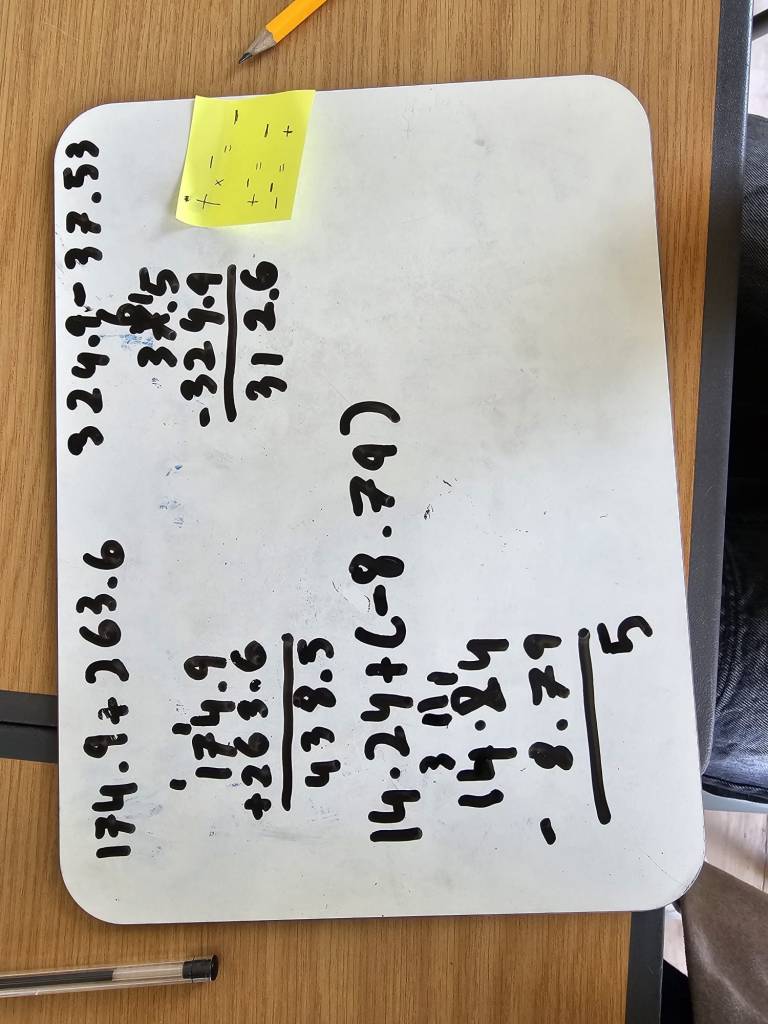 174.9+263.6
324.9-37.53
+ × - = -
+ - = -
- - = +
1 1
174.9
+263.6
438.5
-324.9
312.6
14.24+(-8.79)
3 11 1
14.24
- 8.79
5